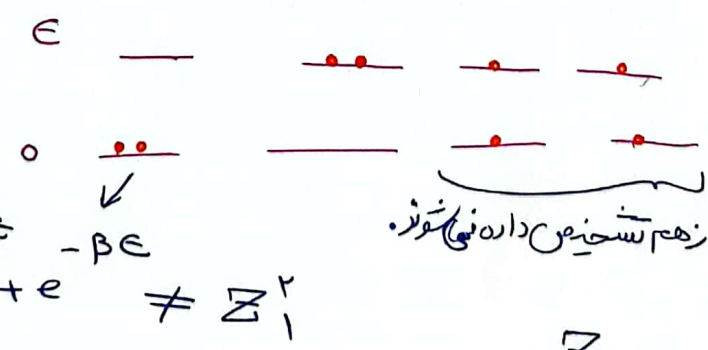 ϵ
०
زهم تشخیص داده نمی‌شوند.
+ e^{-βϵ} ≠ Z₁^۲
Z